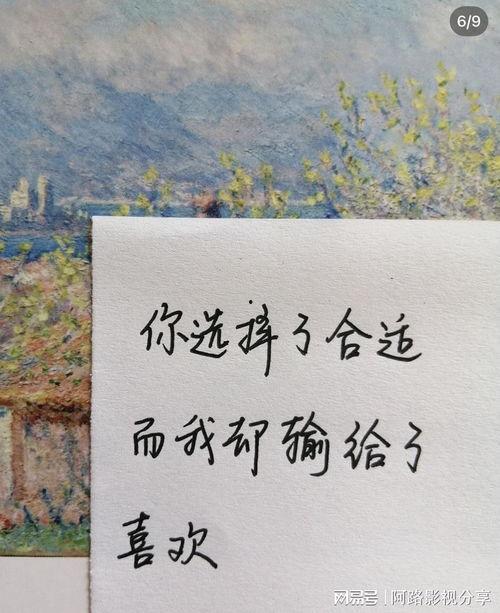 6/9
你选择了合适
而我却输给了
喜欢
网易号 | 阿路影视分享